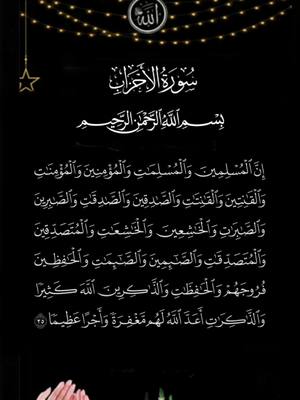 الله
سُورَةُ الأَحْزَابِ
بِسْمِ اللَّهِ الرَّحْمَٰنِ الرَّحِيمِ
إِنَّ الْمُسْلِمِينَ وَالْمُسْلِمَاتِ وَالْمُؤْمِنِينَ وَالْمُؤْمِنَاتِ
وَالْقَانِتِينَ وَالْقَانِتَاتِ وَالصَّادِقِينَ وَالصَّادِقَاتِ وَالصَّابِرِينَ
وَالصَّابِرَاتِ وَالْخَاشِعِينَ وَالْخَاشِعَاتِ وَالْمُتَصَدِّقِينَ
وَالْمُتَصَدِّقَاتِ وَالصَّائِمِينَ وَالصَّائِمَاتِ وَالْحَافِظِينَ
فُرُوجَهُمْ وَالْحَافِظَاتِ وَالذَّاكِرِينَ اللَّهَ كَثِيرًا
وَالذَّاكِرَاتِ أَعَدَّ اللَّهُ لَهُم مَّغْفِرَةً وَأَجْرًا عَظِيمًا ٣٥